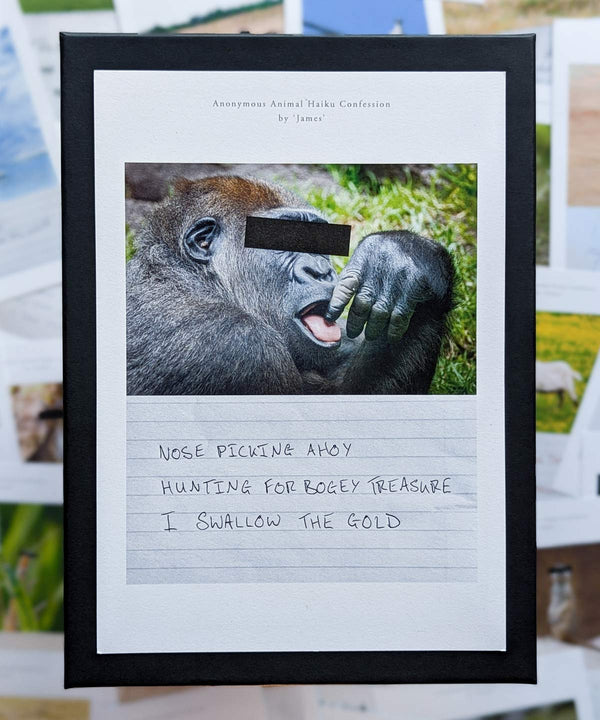 Anonymous Animal Haiku Confession
by 'James'
NOSE PICKING AHOY
HUNTING FOR BOGEY TREASURE
I SWALLOW THE GOLD